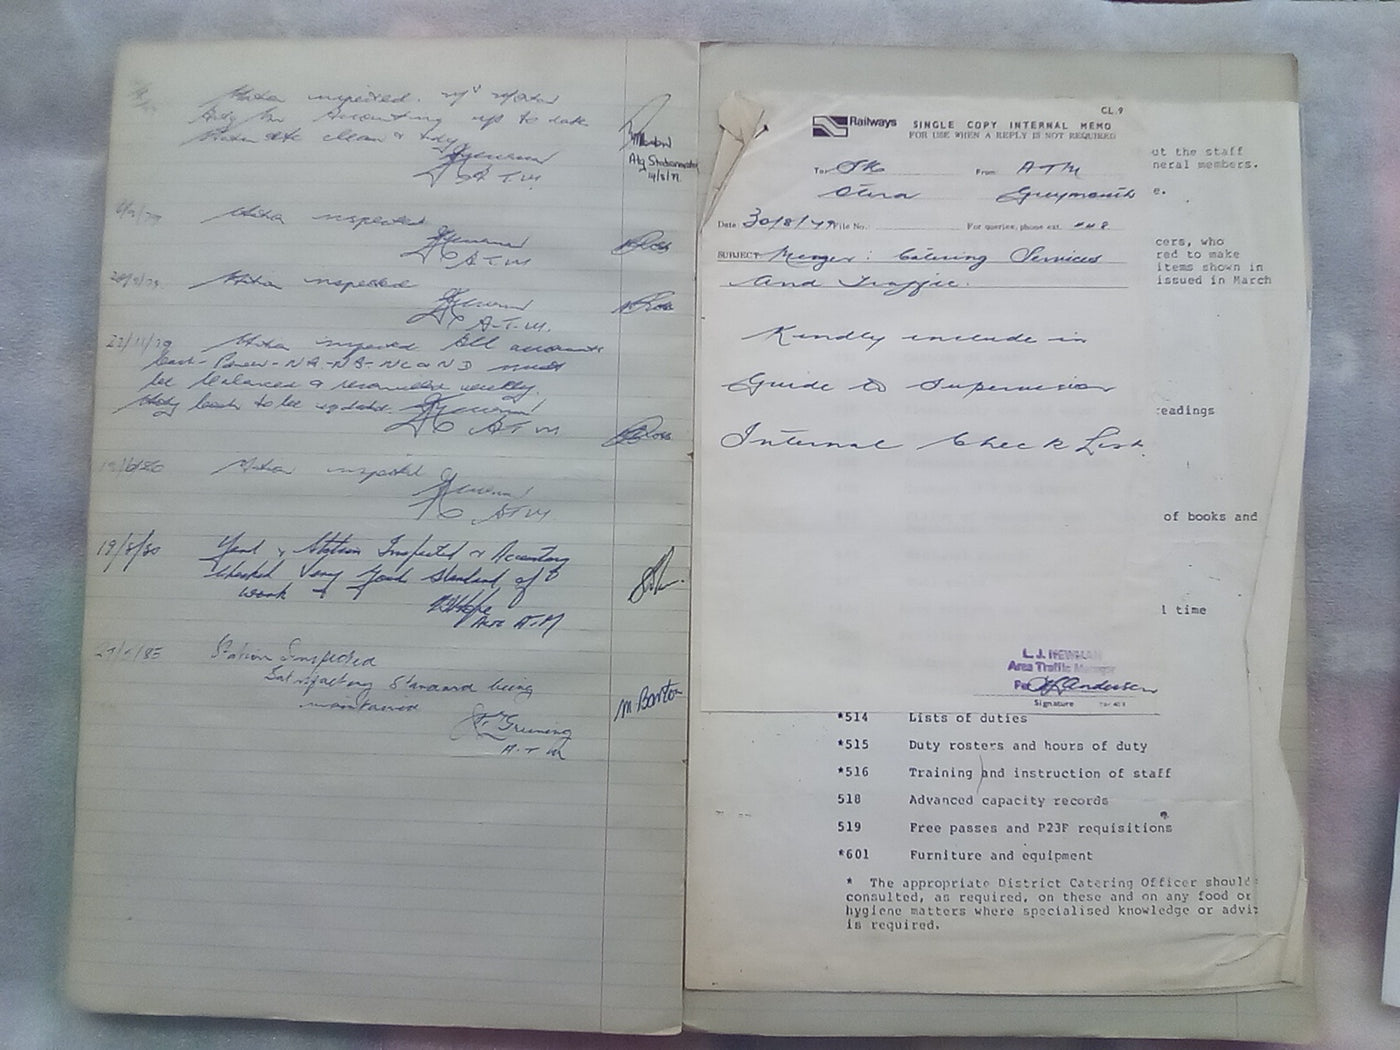 Station inspected.
Accounting up to date
clean & tidy
A.T.M.
Atg Stationmaster
14/8/79
Station inspected
A.T.M.
Ross
Station inspected
A.T.M.
Ross
22/11/79 Station inspected All accounts
NA-NB-NC & ND must
be balanced & reconciled weekly.
to be updated.
A.T.M.
Ross
Station inspected
A.T.M.
19/8/80 Yard & Station Inspected & Accounting
checked Very Good Standard of
work
A.T.M
Station Inspected
Satisfactory Standard being
maintained
Gruning
A.T.M
M Barton
CL.9
Railways SINGLE COPY INTERNAL MEMO
FOR USE WHEN A REPLY IS NOT REQUIRED
To: SM From: ATM
Otira Greymouth
Date: 30/8/79 File No.: For queries, phone ext. 448
SUBJECT: Merger: Catering Services
And Traffic.
Kindly include in
Guide to Supervision
Internal Check List.
L. J. NEWMAN
Area Traffic Manager
Per Andersen
Signature
ut the staff
neral members.
e.
cers, who
red to make
items shown in
issued in March
eadings
of books and
l time
*514 Lists of duties
*515 Duty rosters and hours of duty
*516 Training and instruction of staff
518 Advanced capacity records
519 Free passes and P23F requisitions
*601 Furniture and equipment
* The appropriate District Catering Officer should
consulted, as required, on these and on any food or
hygiene matters where specialised knowledge or advi
is required.